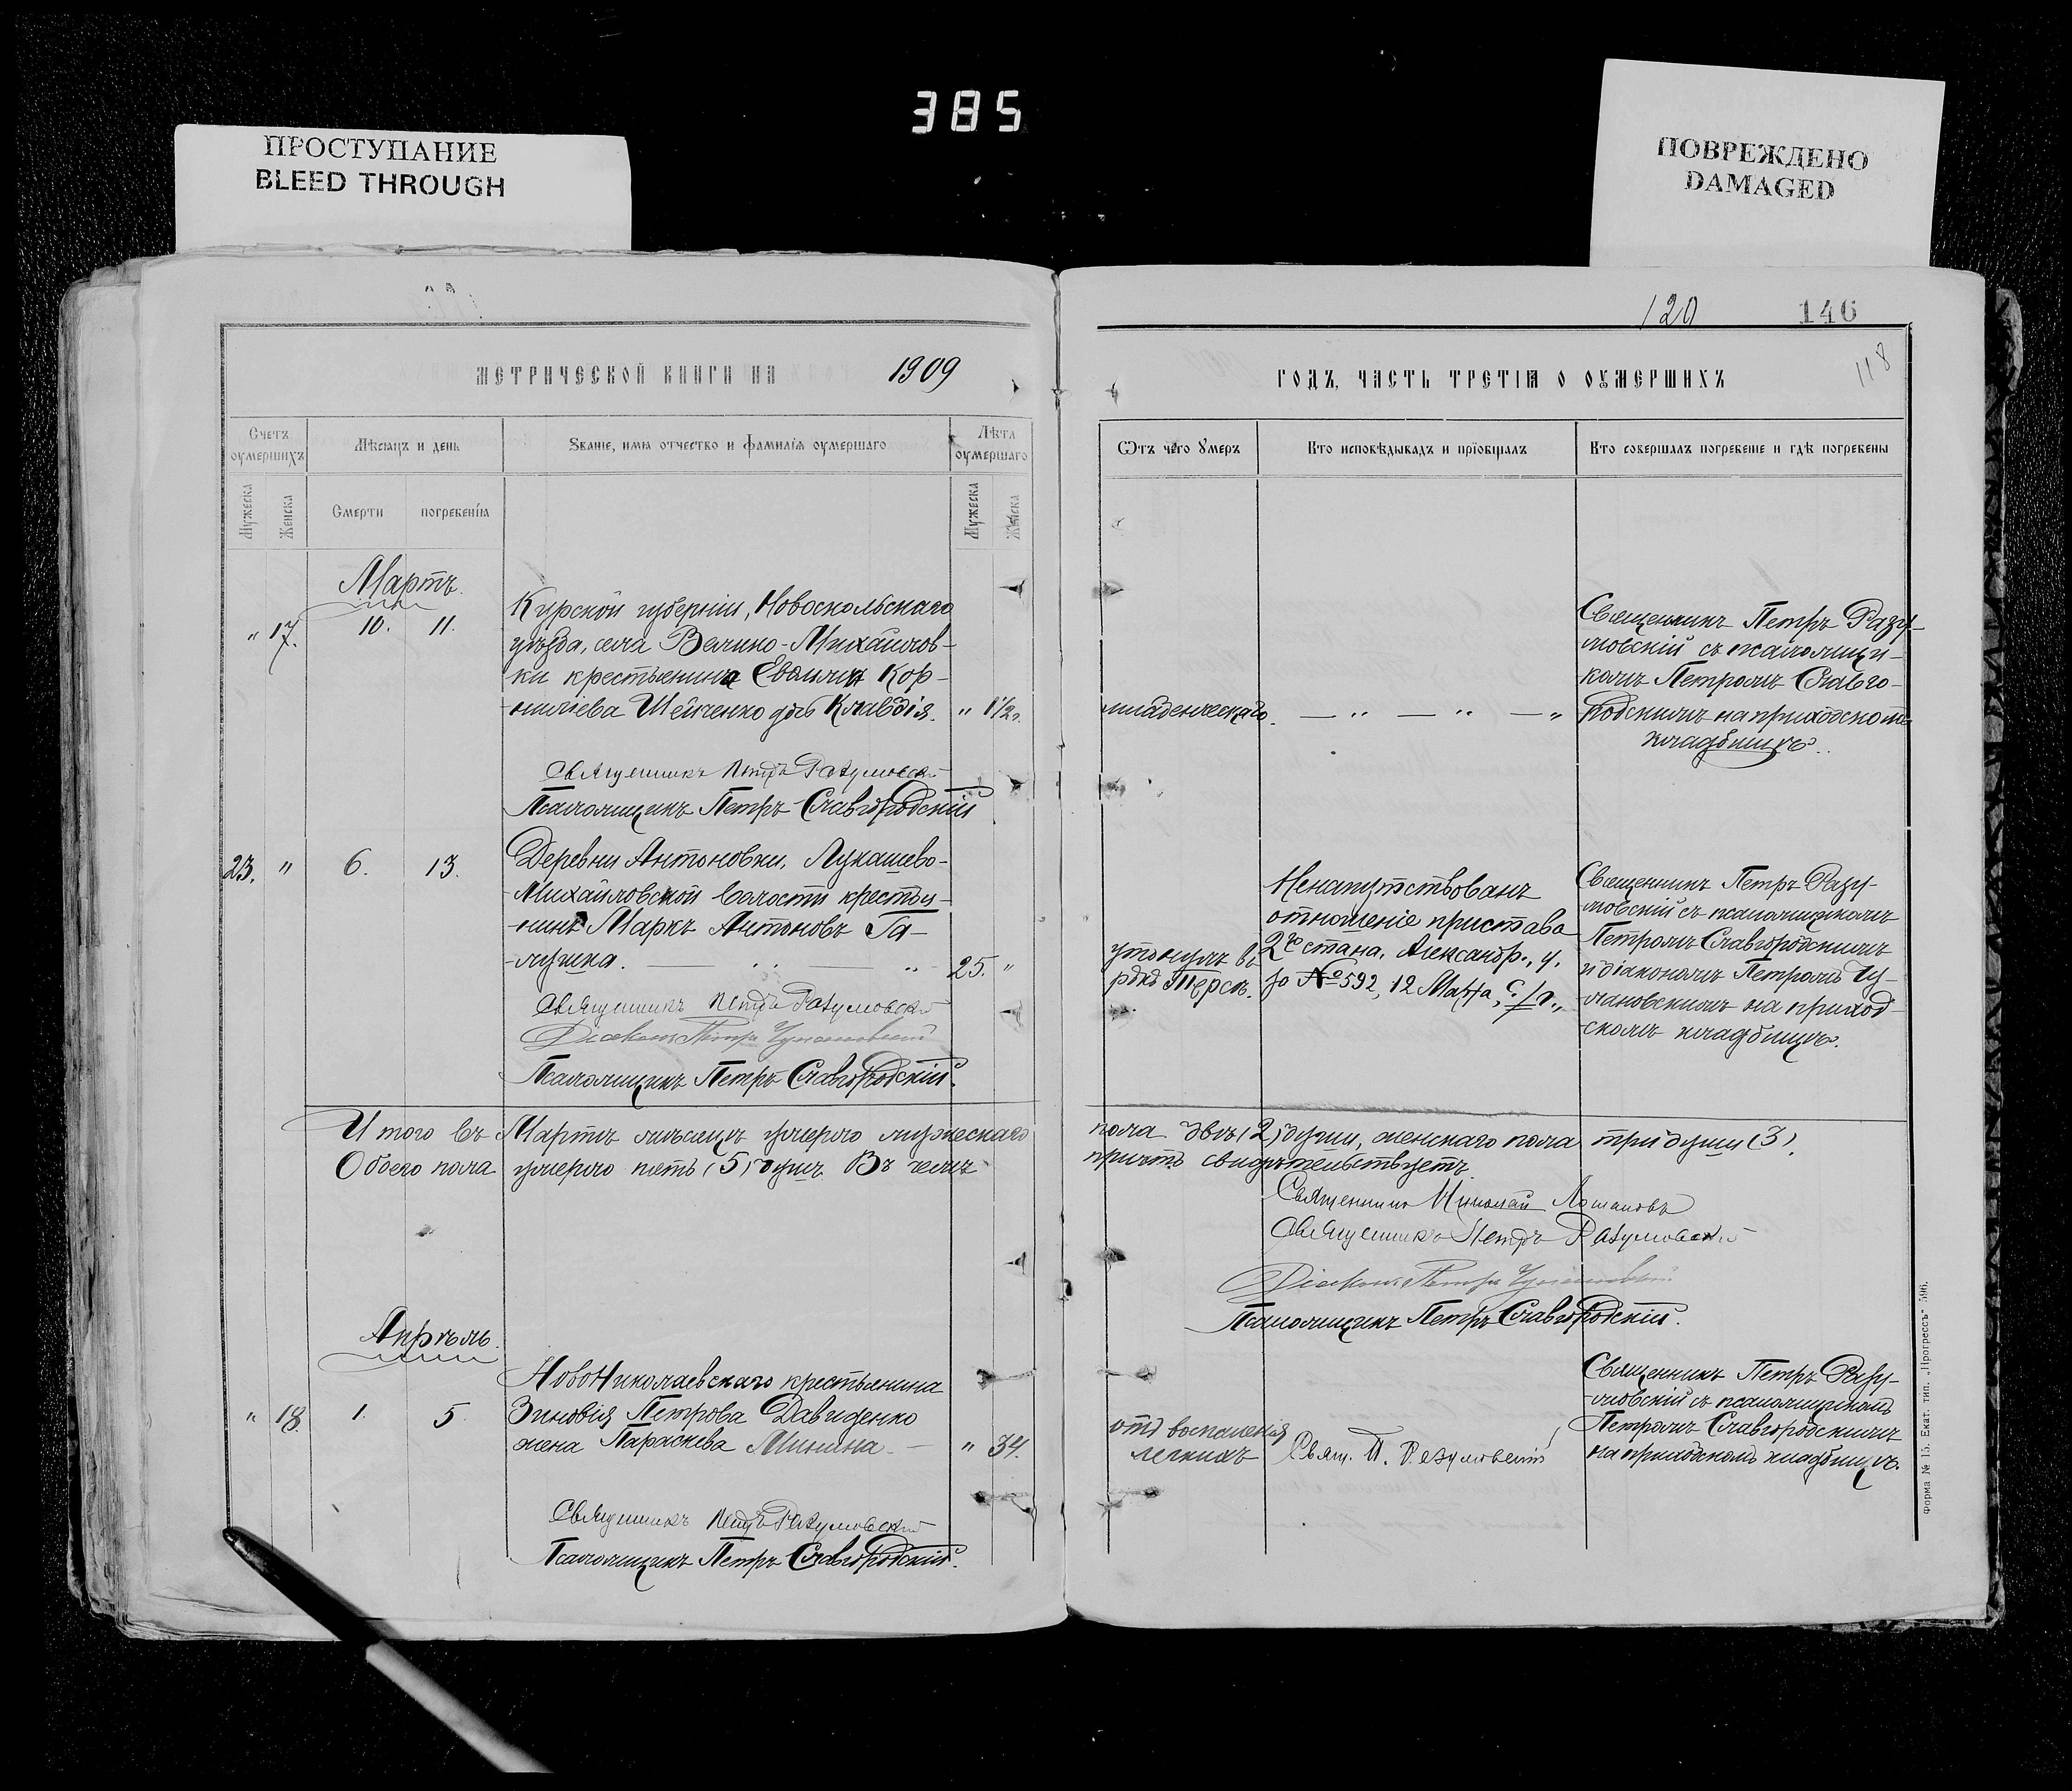 385
ПРОСТУПАНИЕ
BLEED THROUGH
ПОВРЕЖДЕНО
DAMAGED
120 146
118
МЕТРИЧЕСКОЙ КНИГИ НА 1909
Счетъ оумершихъ
Мѣсяцъ и день
Званіе, имя отчество и фамилія оумершаго
Лѣта оумершаго
Мужеска
Женска
Смерти
погребенія
Мужеска
Женска
Мартъ.
" 17. 10. 11.
Курской губерніи, Новооскольскаго
уѣзда, села Велико-Михайлов-
ки крестьянина Кор-
ниліева Шейченко дочь Клавдія. " 1 1/2
Священникъ Петръ Разумовскій
Псаломщикъ Петръ Славгородскій
23. " 6. 13.
Деревни Антоновки, Лукашево-
Михайловской волости крестья-
нинъ Маркъ Антоновъ Га-
лушка. 25. "
Священникъ Петръ Разумовскій
Діаконъ Петръ
Псаломщикъ Петръ Славгородскій.
Итого въ Мартѣ мѣсяцѣ умерло мужескаго
Обоего пола умерло пять (5) душъ. Въ чемъ
Апрѣль.
" 18. 1. 5.
НовоНиколаевскаго крестьянина
Зиновія Петрова Давиденко
жена Параскева Минина - " 34.
Священникъ Петръ Разумовскій
Псаломщикъ Петръ Славгородскій.
ГОДЪ, ЧАСТЬ ТРЕТІЯ О ОУМЕРШИХЪ
Ѿтъ чего Умеръ
Кто исповѣдывалъ и пріобщалъ
Кто совершалъ погребеніе и гдѣ погребены
младенческаго. — " — " — "
Священникъ Петръ Разу-
мовскій съ псаломщи-
комъ Петромъ Славго-
родскимъ на приходскомъ
кладбищѣ.
утонулъ въ
рѣкѣ Терсѣ.
Ненапутствованъ
отношеніе пристава
2го стана, Александр., у.
за № 592, 12 Марта, с/г.,
Священникъ Петръ Разу-
мовскій съ псаломщикомъ
Петромъ Славгородскимъ
и діакономъ Петромъ
на приход-
скомъ кладбищѣ.
пола двѣ (2) души, женскаго пола три души (3).
причтъ свидѣтельствуетъ.
Священникъ Николай
Священникъ Петръ Разумовскій
Діаконъ Петръ
Псаломщикъ Петръ Славгородскій.
отъ воспаленія
легкихъ
Свящ. П. Разумовскій
Священникъ Петръ Разу-
мовскій съ псаломщикомъ
Петромъ Славгородскимъ
на приходскомъ кладбищѣ.
Форма № 15. Екат. тип. „Прогрессъ" 596.